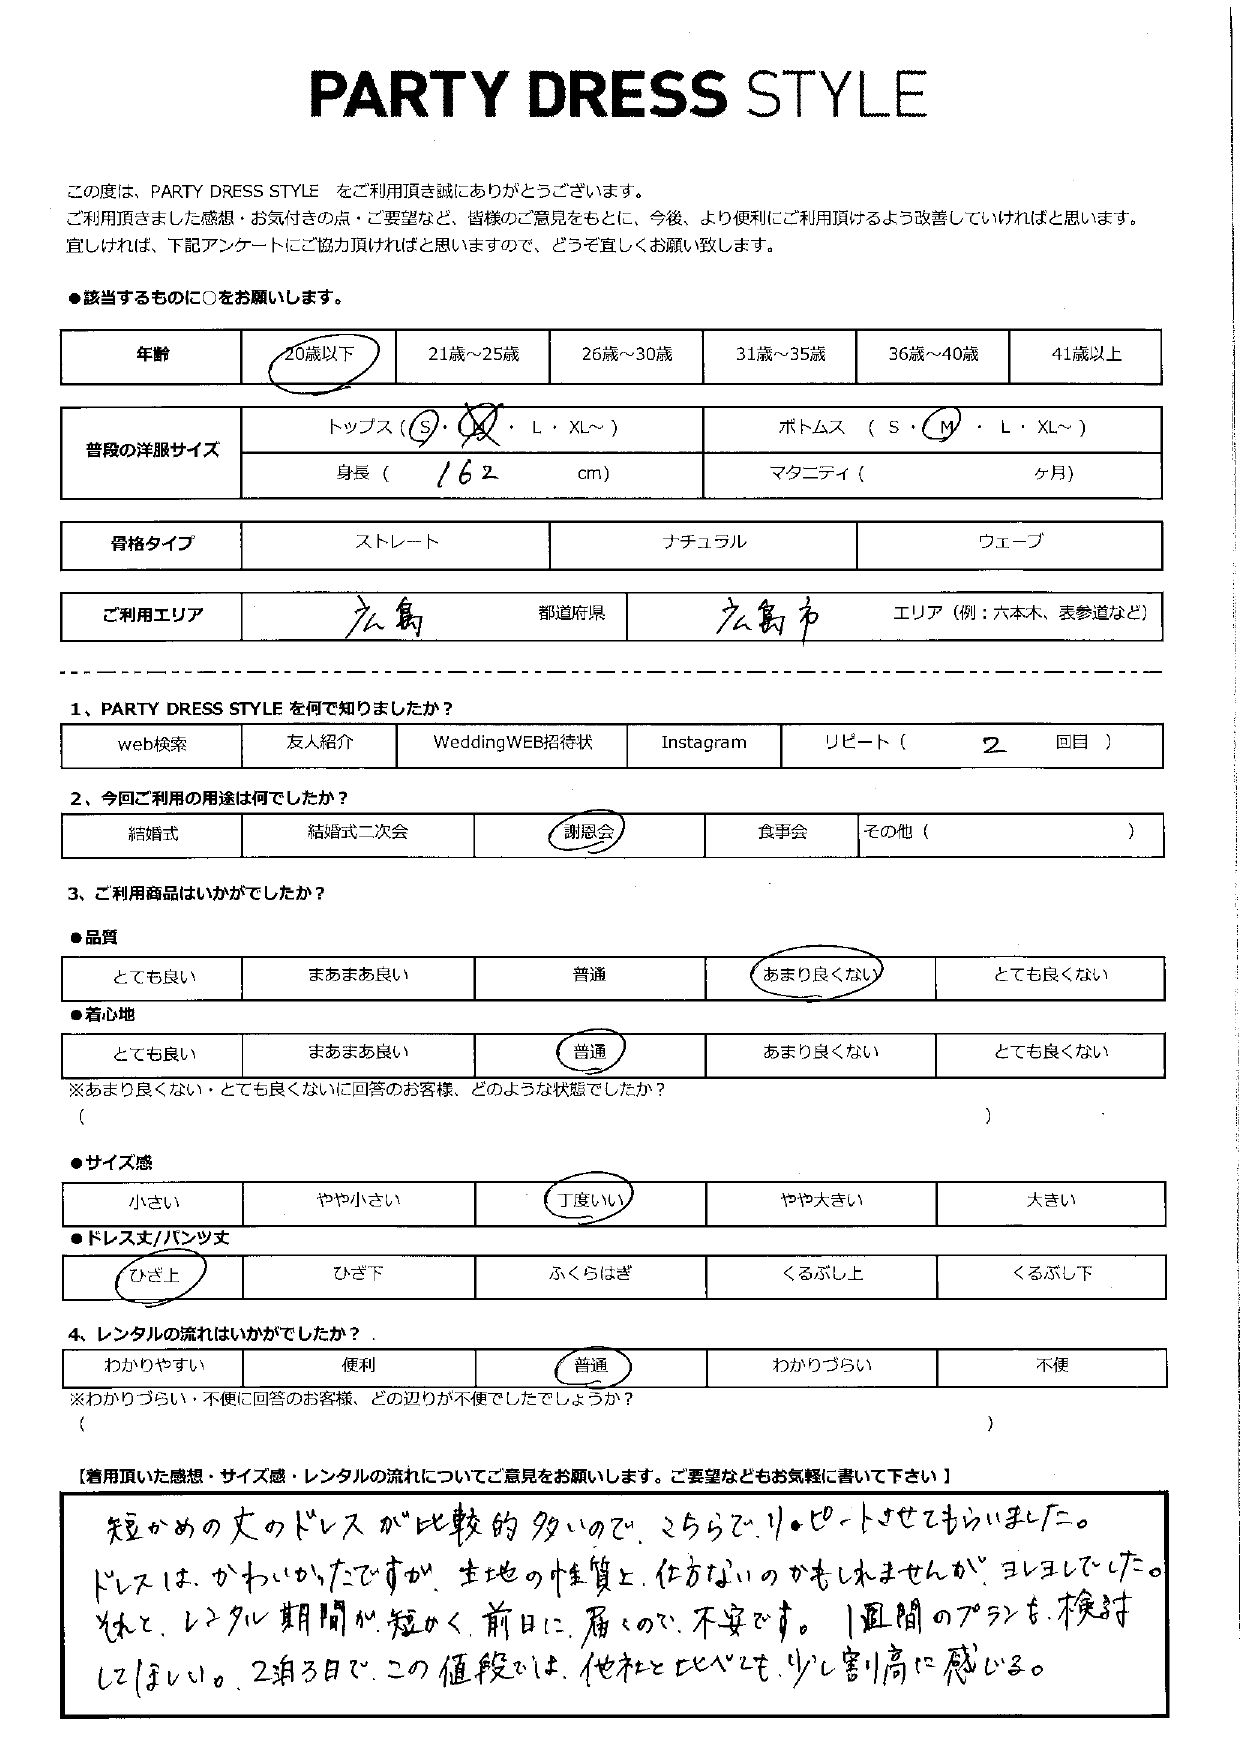 PARTY DRESS STYLE
この度は、PARTY DRESS STYLE　をご利用頂き誠にありがとうございます。
ご利用頂きました感想・お気付きの点・ご要望など、皆様のご意見をもとに、今後、より便利にご利用頂けるよう改善していければと思います。
宜しければ、下記アンケートにご協力頂ければと思いますので、どうぞ宜しくお願い致します。
●該当するものに○をお願いします。
年齢 20歳以下 21歳～25歳 26歳～30歳 31歳～35歳 36歳～40歳 41歳以上
普段の洋服サイズ
トップス（S・M・L・XL～） ボトムス （S・M・L・XL～）
身長（ 162 cm） マタニティ（ ヶ月）
骨格タイプ ストレート ナチュラル ウェーブ
ご利用エリア 広島 都道府県 広島市 エリア（例：六本木、表参道など）
1、PARTY DRESS STYLE を何で知りましたか？
web検索 友人紹介 WeddingWEB招待状 Instagram リピート（ 2 回目 ）
2、今回ご利用の用途は何でしたか？
結婚式 結婚式二次会 謝恩会 食事会 その他（ ）
3、ご利用商品はいかがでしたか？
●品質
とても良い まあまあ良い 普通 あまり良くない とても良くない
●着心地
とても良い まあまあ良い 普通 あまり良くない とても良くない
※あまり良くない・とても良くないに回答のお客様、どのような状態でしたか？
（ ）
●サイズ感
小さい やや小さい 丁度いい やや大きい 大きい
●ドレス丈/パンツ丈
ひざ上 ひざ下 ふくらはぎ くるぶし上 くるぶし下
4、レンタルの流れはいかがでしたか？
わかりやすい 便利 普通 わかりづらい 不便
※わかりづらい・不便に回答のお客様、どの辺りが不便でしたでしょうか？
（ ）
【着用頂いた感想・サイズ感・レンタルの流れについてご意見をお願いします。ご要望などもお気軽に書いて下さい 】
短かめの丈のドレスが比較的多いので、こちらで、リピートさせてもらいました。
ドレスは、かわいかったですが、生地の性質上、仕方ないのかもしれませんが、ヨレヨレでした。
それと、レンタル期間が、短かく、前日に、届くので、不安です。1週間のプランも、検討
してほしい。2泊3日で、この値段では、他社と比べても、少し割高に感じる。